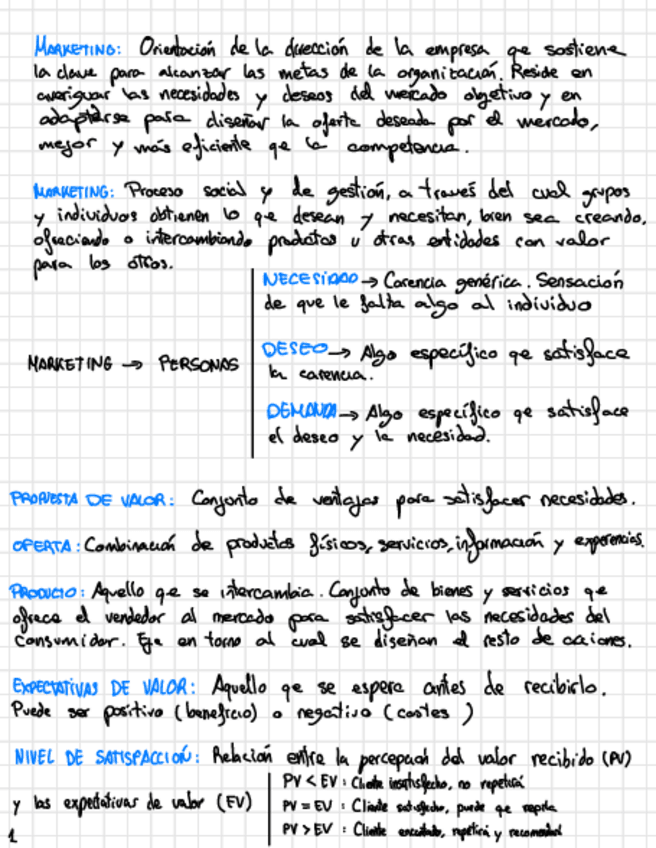 MARKETING: Orientación de la dirección de la empresa qe sostiene
la clave para alcanzar las metas de la organización. Reside en
averiguar las necesidades y deseos del mercado objetivo y en
adaptarse para diseñar la oferta deseada por el mercado,
mejor y más eficiente qe la competencia.
MARKETING: Proceso social y de gestión, a través del cual grupos
y individuos obtienen lo qe desean y necesitan, bien sea creando,
ofreciendo o intercambiando productos u otras entidades con valor
para los otros.
NECESIDAD → Carencia genérica. Sensación
de que le falta algo al individuo
MARKETING → PERSONAS
DESEO → Algo específico qe satisface
la carencia.
DEMANDA → Algo específico qe satisface
el deseo y la necesidad.
PROPUESTA DE VALOR: Conjunto de ventajas para satisfacer necesidades.
OFERTA: Combinación de productos físicos, servicios, información y experiencias.
PRODUCTO: Aquello qe se intercambia. Conjunto de bienes y servicios qe
ofrece el vendedor al mercado para satisfacer las necesidades del
consumidor. Eje en torno al cual se diseñan el resto de acciones.
EXPECTATIVAS DE VALOR: Aquello qe se espera antes de recibirlo.
Puede ser positivo (beneficio) o negativo (costes)
NIVEL DE SATISFACCIÓN: Relación entre la percepción del valor recibido (PV)
y las expectativas de valor (EV)
PV < EV : Cliente insatisfecho, no repetirá
PV = EV : Cliente satisfecho, puede qe repita
PV > EV : Cliente encantado, repetirá y recomendará
1